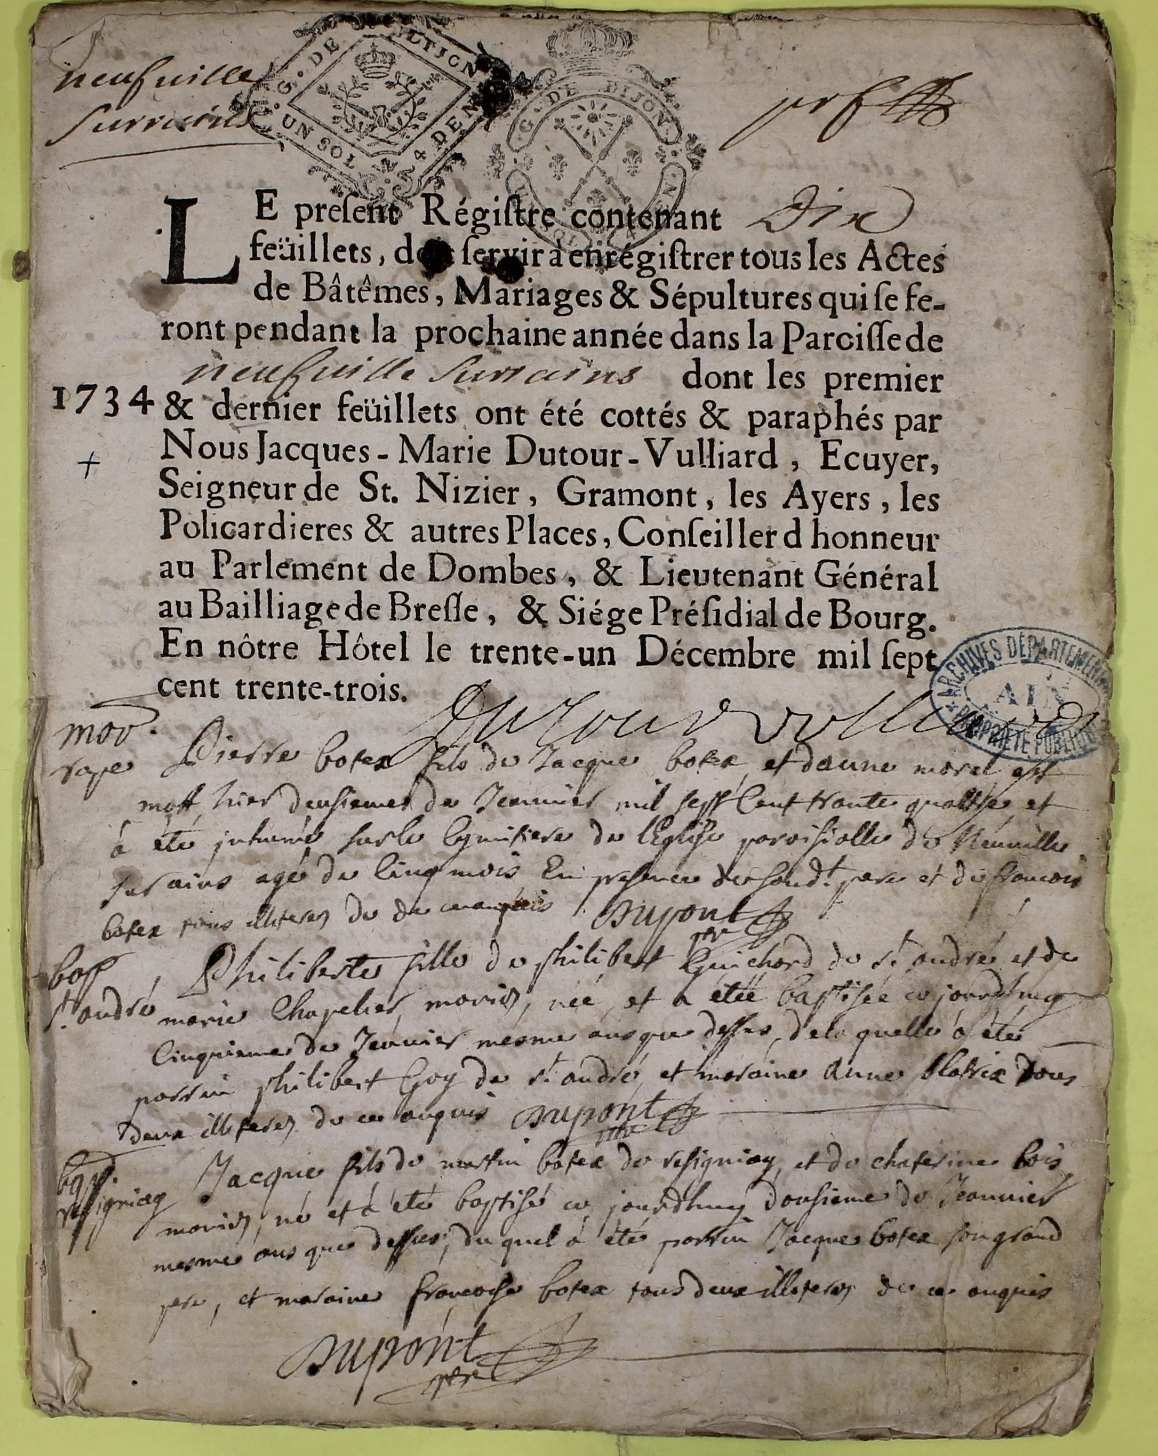 neufuille
Surrains
G. DE DIJON
UN SOL
LE preſent Régiſtre contenant Dix
feüillets, doit ſervir à enrégiſtrer tous les Actes
de Bâtêmes, Mariages & Sépultures qui ſe fe-
ront pendant la prochaine année dans la Paroiſſe de
neufuille Surrains dont les premier
1734 & dernier feüillets ont été cottés & paraphés par
Nous Jacques-Marie Dutour-Vulliard, Ecuyer,
Seigneur de St. Nizier, Gramont, les Ayers, les
Policardieres & autres Places, Conſeiller d honneur
au Parlement de Dombes, & Lieutenant Général
au Bailliage de Breſſe, & Siége Préſidial de Bourg.
En nôtre Hôtel le trente-un Décembre mil ſept
cent trente-trois.
ARCHIVES DÉPARTEMENTALES
AIN
PROPRIÉTÉ PUBLIQUE
Dutour Vulliard
mor.
Pierre botex fils de Jacque botex et danne morel est
mort hier deusieme de Jeanuier mil sept Cent trante quattre et
à eté inhumé sur le Cymitiere de l'Eglise paroissialle de Neuuille
sur ains agé de Cinq mois En presence de son dt. pere et de francois
botex tous illiteres de ce enquis Dupont
bap
st. andré
Philiberte fille de philibert Guichard de st. andré et de
marie Chapelier, mariés, née et a étée baptisée ce jourdhuy
Cinquieme de Jeanuier mesme ans que dessus, de la quelle à été
parrin philibert Goy de st. andré, et maraine anne blatrix tous
deux illiteres de ce enquis Dupont
bap.
resigniay
Jacque fils de martin botex de resigniay, et de chaterine bois
mariés, né et à été baptisé ce jourdhuy dousieme de Jeanuier
mesme ans que dessus, du quel à été parrin Jacque botex son grand
pere, et maraine francoise botex tous deux illiteres de ce enquis
Dupont